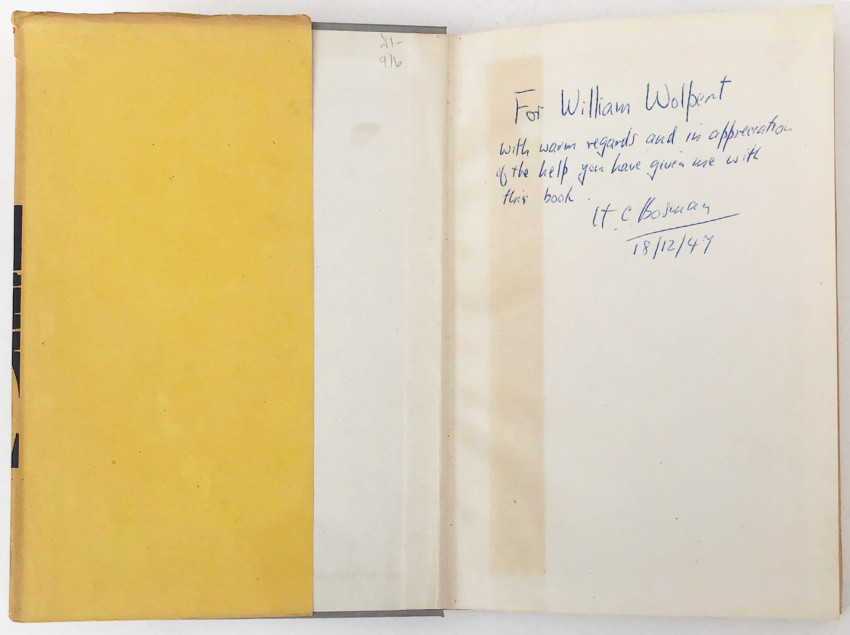 9/6
For William Wolpert
with warm regards and in appreciation
of the help you have given me with
this book.
H. C. Bosman
18/12/47